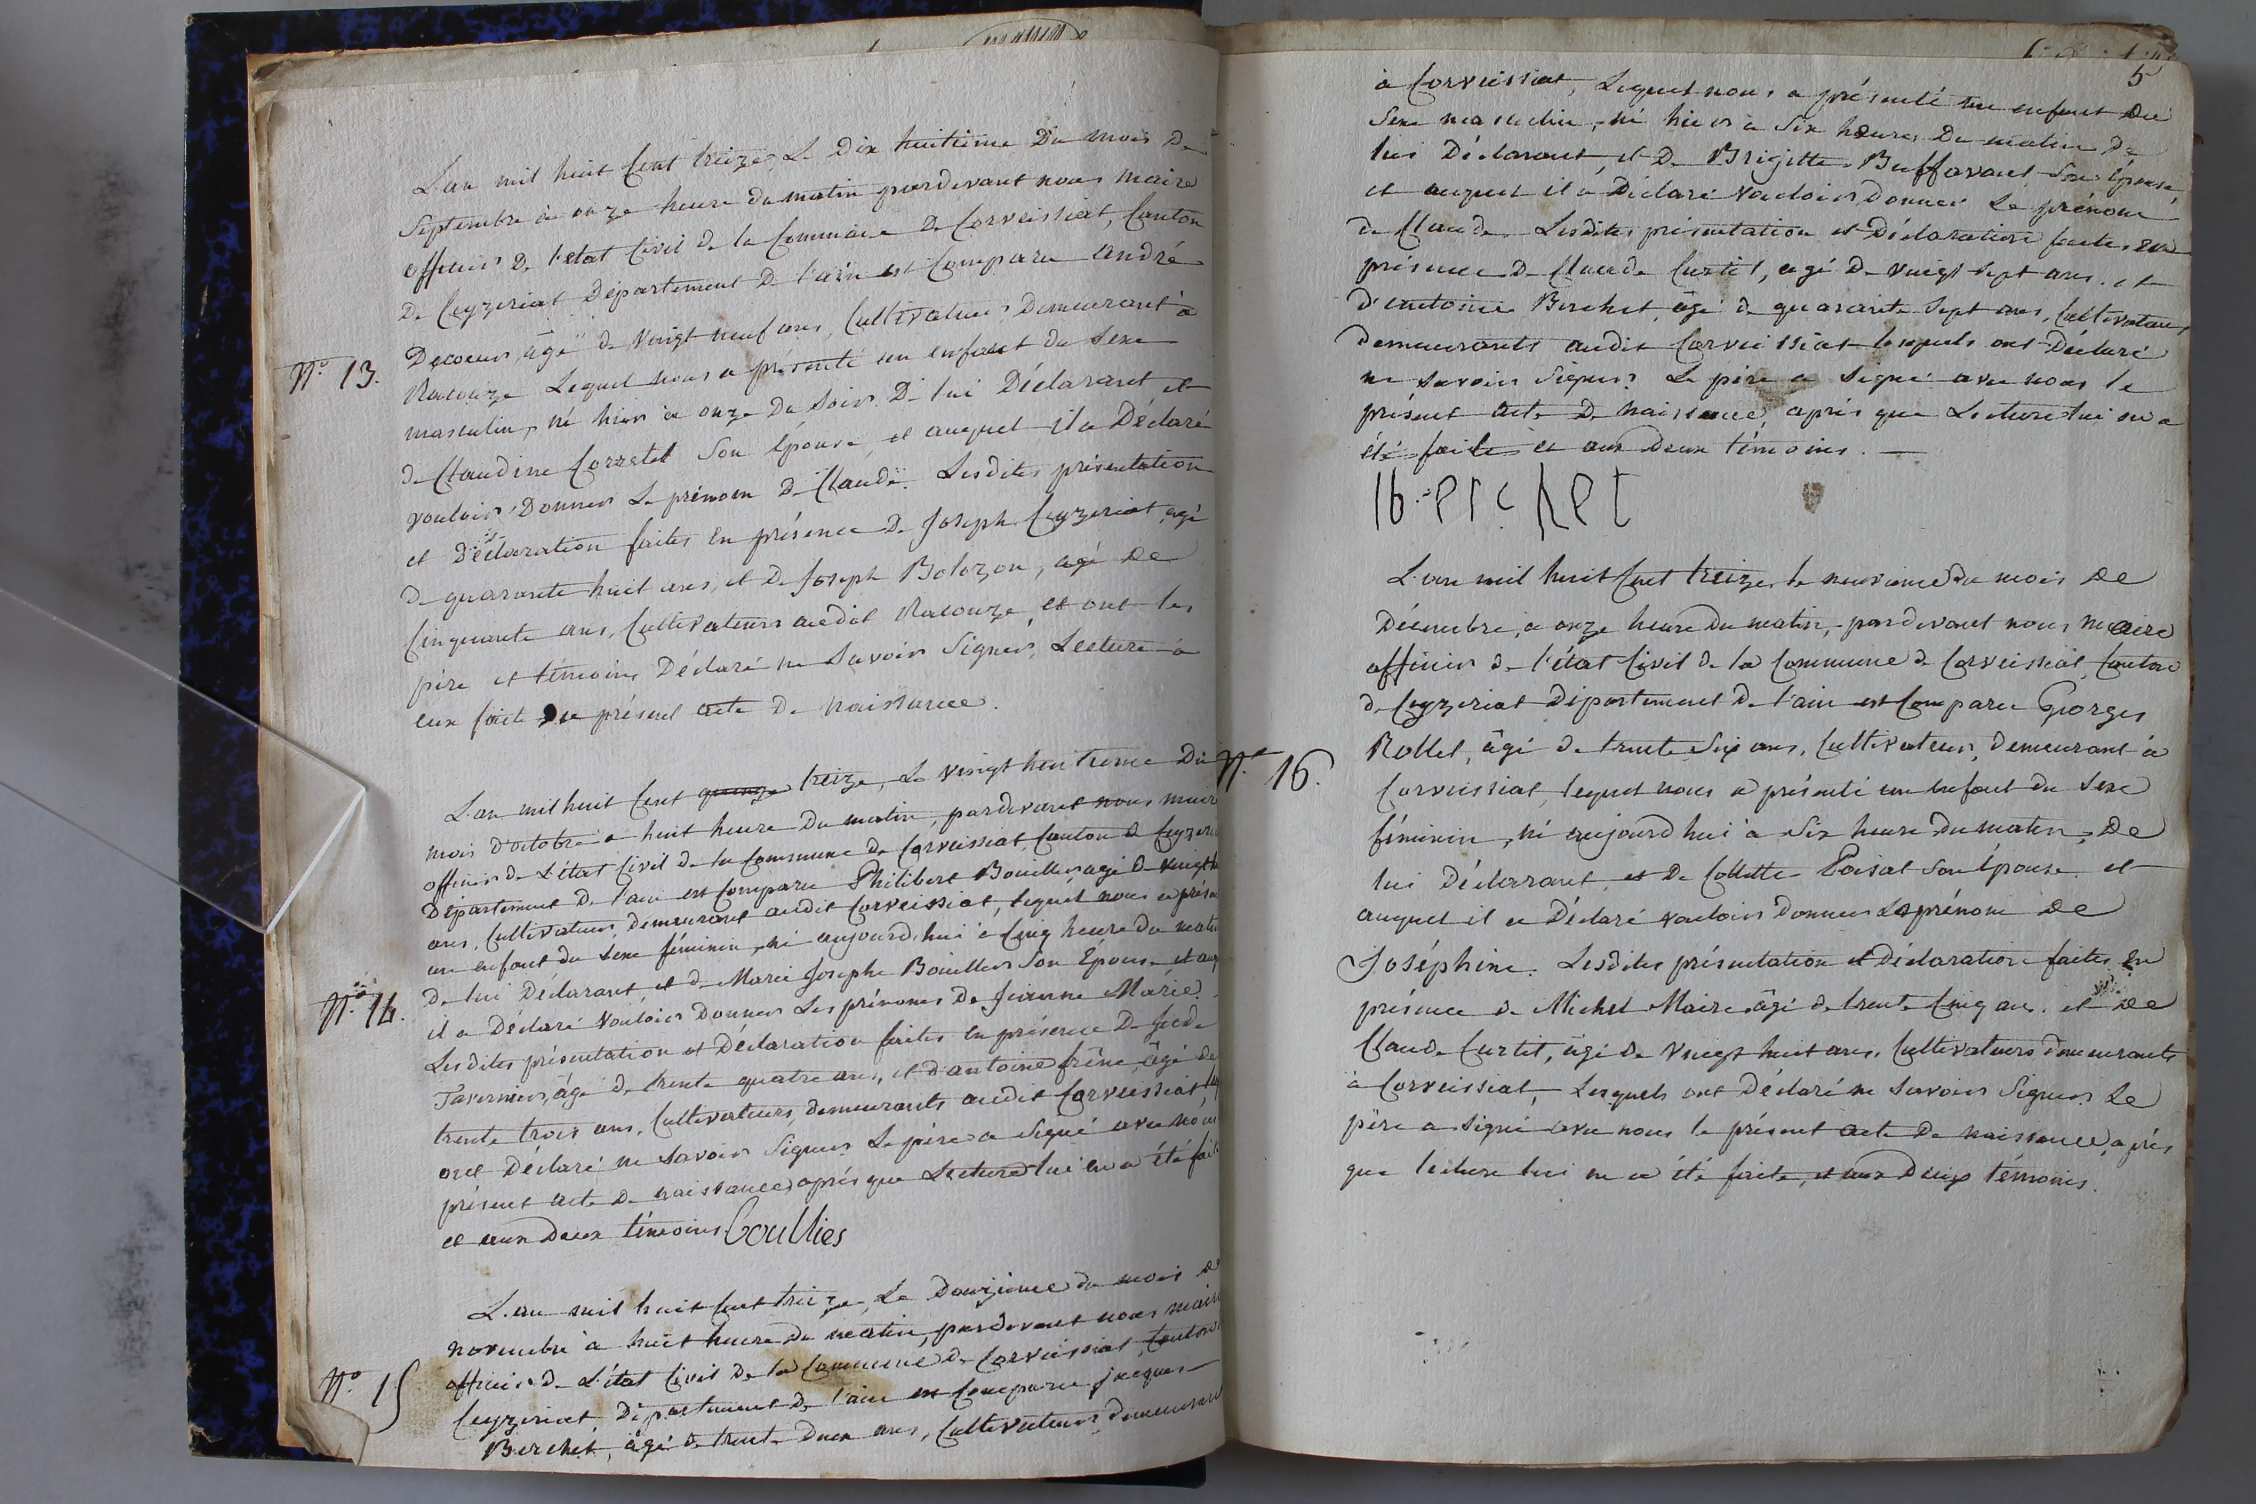 L'an mil huit Cent treize, Le Dix huitieme Du mois De
Septembre à onze heure du matin pardevant nous maire
officier De l'etat Civil de la Commune De Corveissiat, Canton
De Ceyzeriat Département De l'ain est Comparu andré
Decoeur, âgé de vingt neuf ans, Cultivateur Demeurant à
N.o 13.
Racouze Lequel nous a présenté un enfant du Sexe
masculin, né hier à onze Du Soir De lui Déclarant et
de Claudine Corretel Son Epouse, et auquel il a Déclaré
vouloir Donner Le prénom De Claude. Lesdites présentation
et Déclaration faites en présence De Joseph Ceyzeriat, agé
de quarante huit ans, et De Joseph Bolozon, agé de
Cinquante ans, Cultivateurs audit Racouze, et ont les
père et témoins Déclaré ne Savoir Signer, Lecture à
eux fait du présent acte De naissance.
L'an mil huit Cent quinze treize, Le vingt huitieme Du
mois D'octobre à huit heure Du matin, pardevant nous maire
officier de L'état Civil de la Commune de Corveissiat, Canton de Ceyzeri
Département De l'ain est Comparu Philibert Bouiller agé de vingt
ans, Cultivateur, demeurant audit Corveissiat, lequel nous a présen
un enfant du Sexe féminin, né aujourd'hui à Cinq heure du matin
De lui Déclarant, et de Marie Josephe Bouiller Son Epouse et auq
N.o 14.
il a Déclaré Vouloir Donner Les prénoms De Jeanne Marie.
Lesdites présentation et Déclaration faites en présence De
Tavernier, âgé de trente quatre ans, et d'antoine frêne, âgé de
trente trois ans, Cultivateurs, demeurants audit Corveissiat,
ont Déclaré ne Savoir Signer Le père a Signé avec nous
présent acte De naissance, après que Lecture lui en a été fait
et aux Deux témoins Boullies
L'an mil huit Cent treize, Le Douzieme du mois de
novembre à huit heure du matin, pardevant nous maire
officier de L'état Civil De la Commune de Corveissiat, Canton
N.o 15
Ceyzeriat, Département De l'ain est Comparu jacques
Berchet, âgé de trente deux ans, Cultivateur, Demeurant
5
à Corveissiat, Lequel nous a présenté un enfant du
Sexe masculin, né hier à Six heures Du matin De
lui Déclarant, et De Brigitte Buffavant Son Epouse,
et auquel il a Déclaré Vouloir Donner Le prénom
de Claude. Lesdites présentation et Déclaration faites en
présence De Claude Curtil, agé De vingt sept ans, et
d'antoine Berchet, âgé de quarante Sept ans, Cultivateurs
demeurants audit Corveissiat lesquels ont Déclaré
ne Savoir Signer. Le père a Signé avec nous le
présent acte De naissance, après que Lecture lui en a
été faite et aux Deux témoins.
L'an mil huit Cent treize, le neuvieme du mois De
Décembre, à onze heure Du matin, pardevant nous maire
officier de l'état Civil de la Commune de Corveissiat Canton
de Ceyzeriat Département De l'ain est Comparu Georges
Rollet, âgé de trente Six ans, Cultivateur, demeurant à
N.o 16.
Corveissiat, lequel nous a présenté un enfant du Sexe
féminin, né aujourd'hui à Six heure Du matin, De
lui Déclarant, et De Collette Poisat Son Epouse et
auquel il a Déclaré vouloir donner Le prénom De
Joséphine. Lesdites présentation et Déclaration faites en
présence De Michel Maire âgé de trente Cinq ans, et De
Claude Curtil, âgé de Vingt huit ans, Cultivateurs demeurants
à Corveissiat, Lesquels ont Déclaré ne Savoir Signer. Le
père a Signé avec nous le présent acte De naissance, après
que lecture lui en a été faite, et aux Deux témoins.